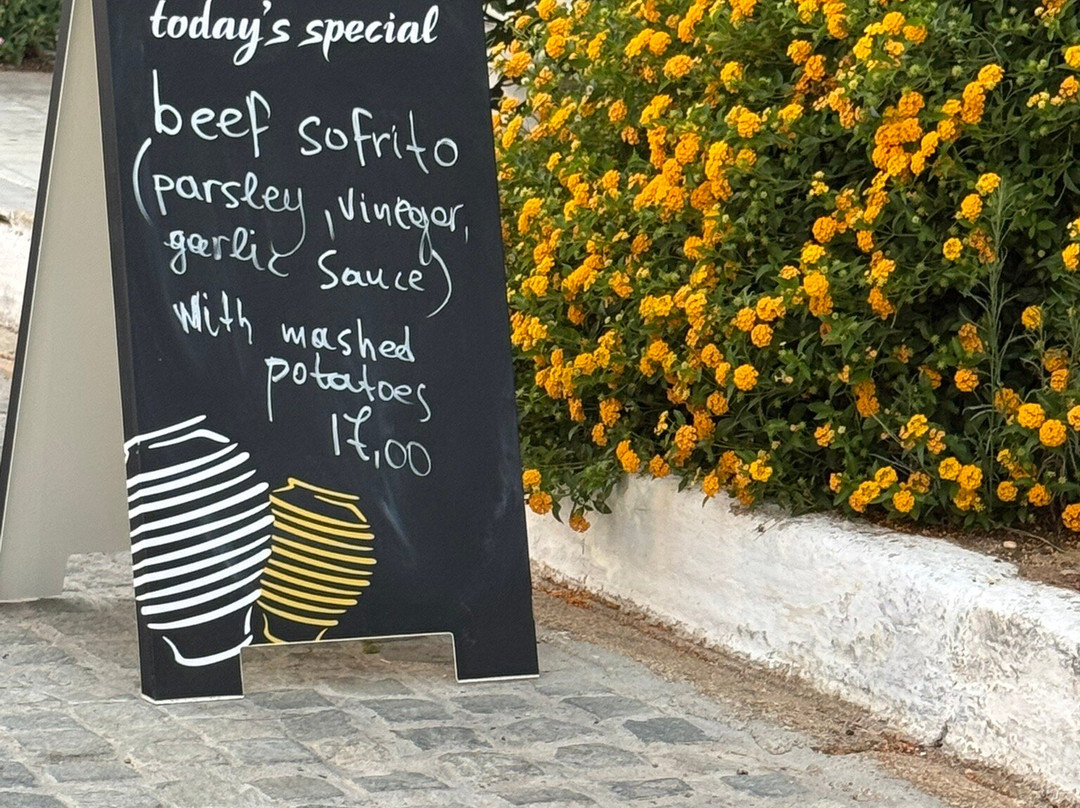 today's special
beef sofrito
(parsley, vinegar,
garlic sauce)
With mashed
potatoes
17,00